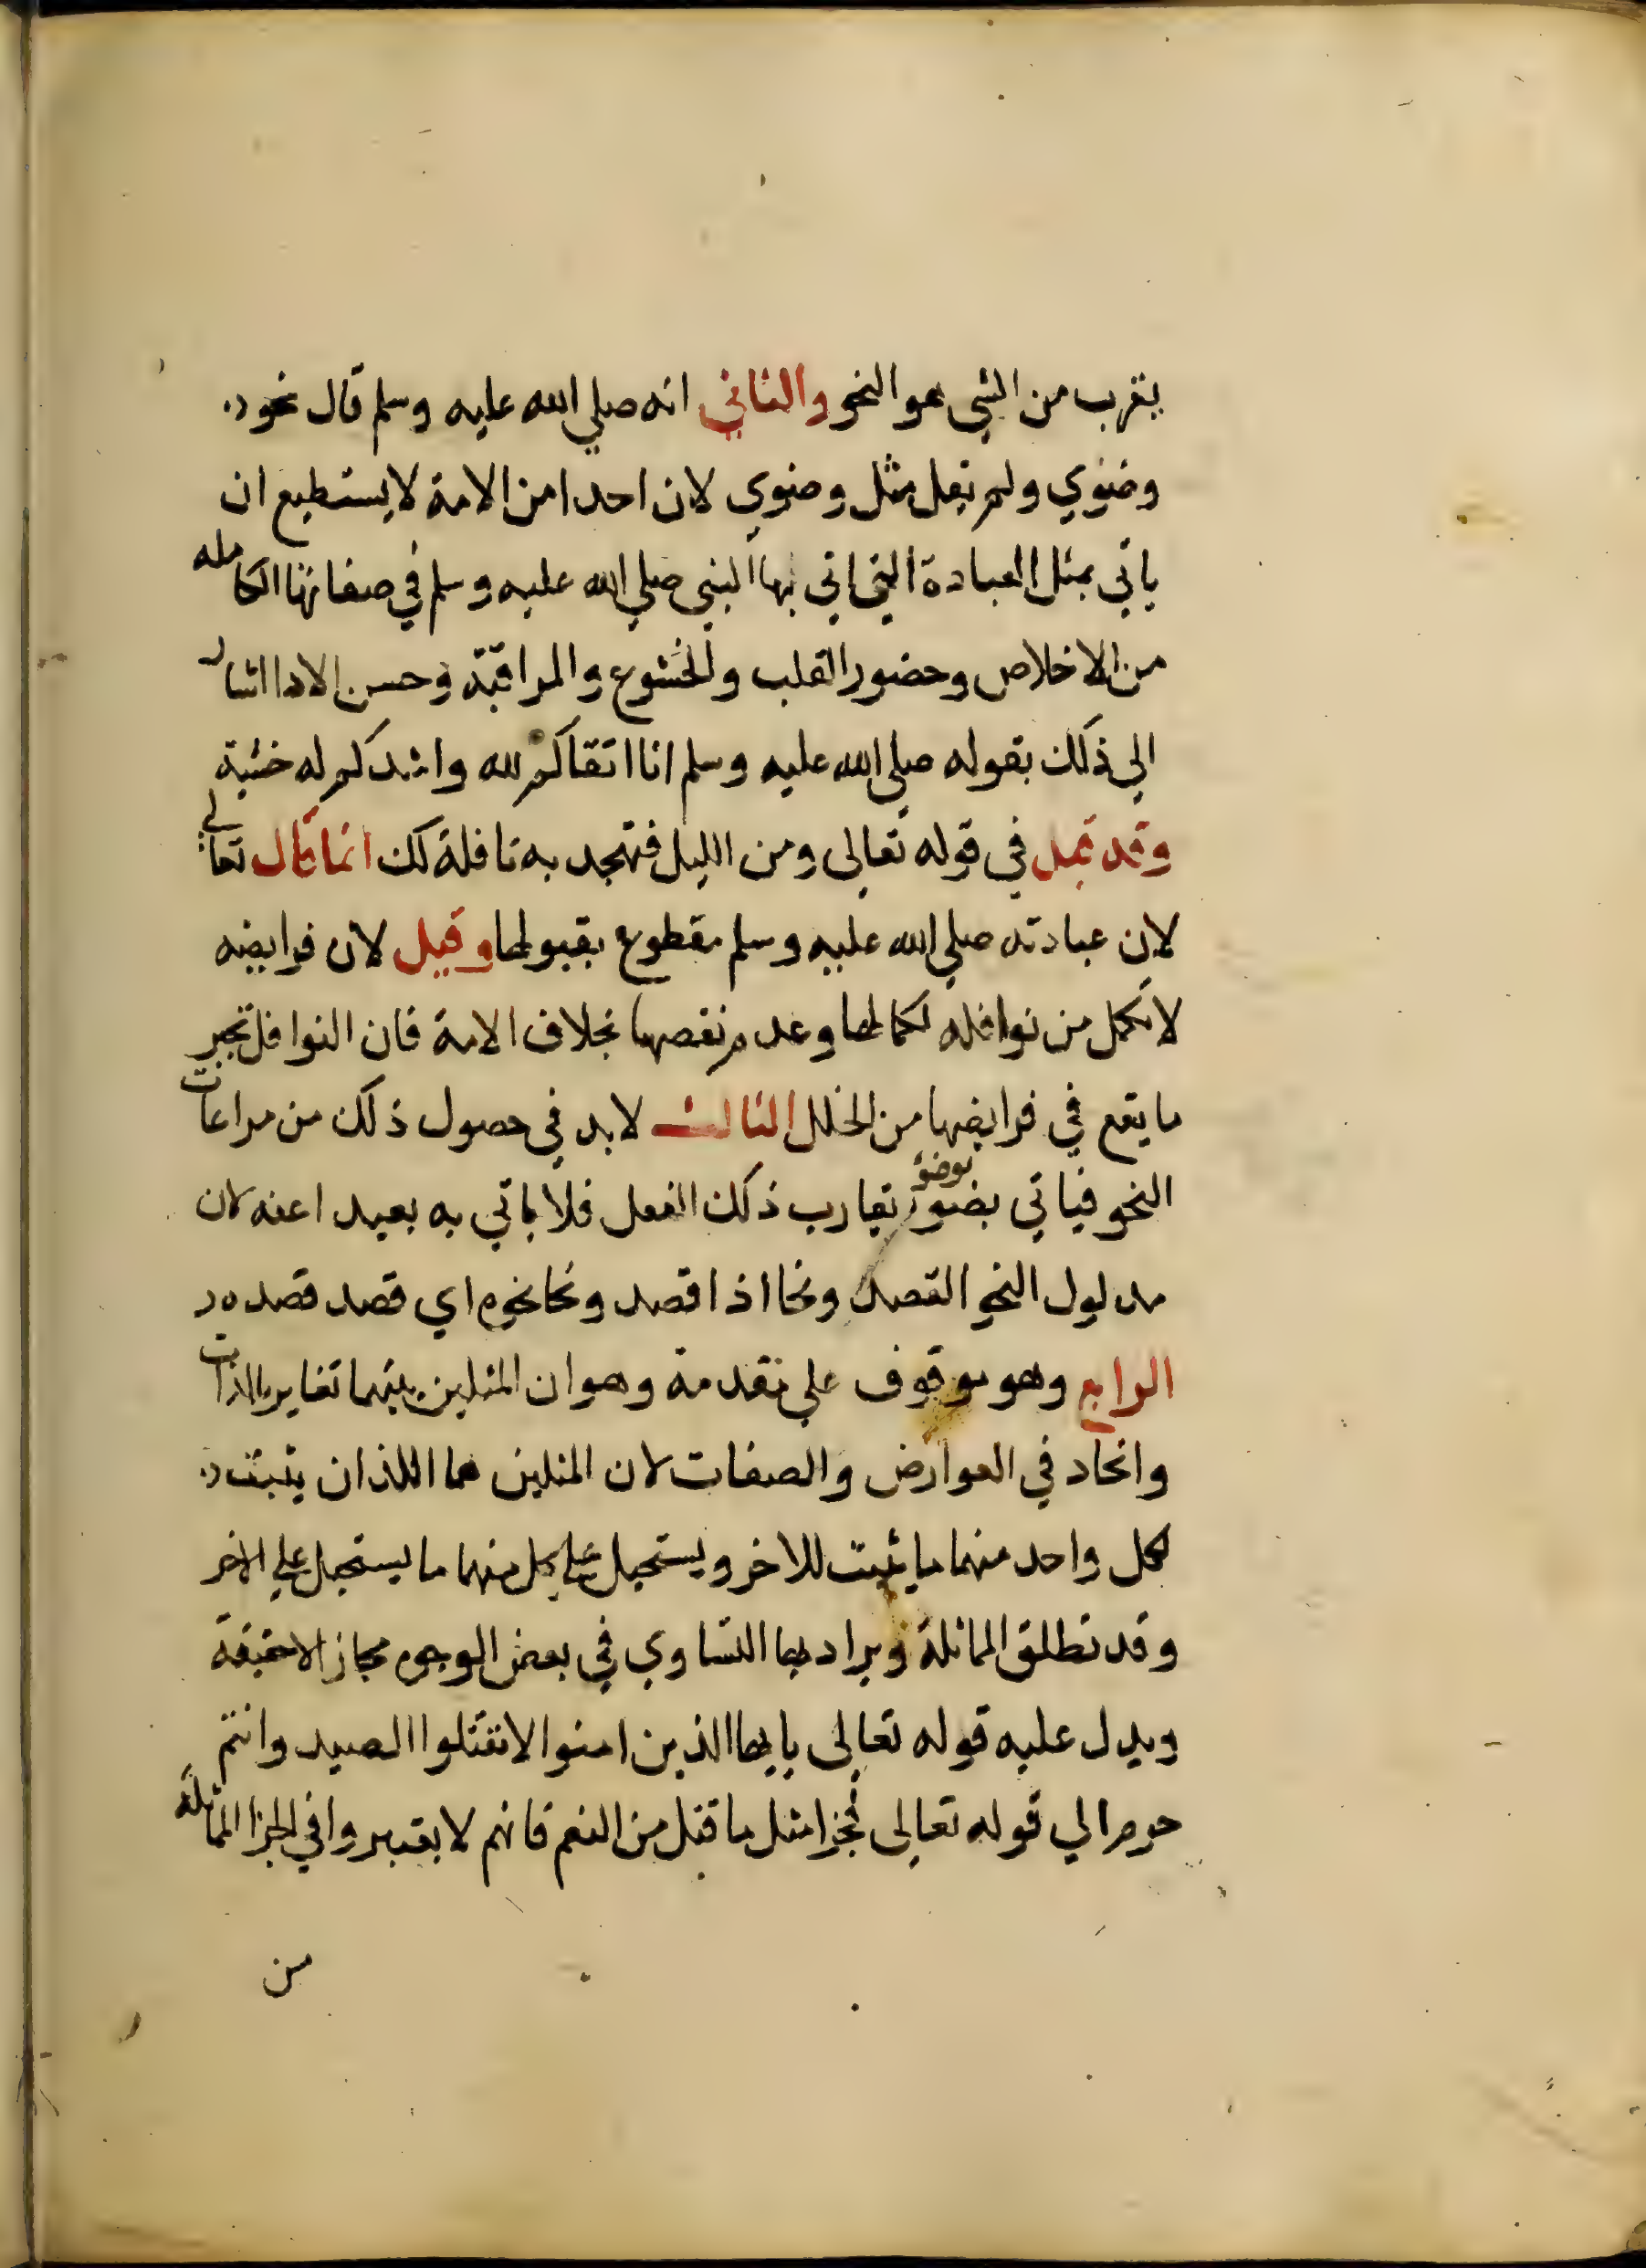 يقرب من الشي هو النحو والثاني انه صلي الله عليه وسلم قال نحو
وضوي ولم يقل مثل وضوي لان احدا من الامة لا يستطيع ان
ياتي بمثل العبادة التي اتي بها النبي صلي الله عليه وسلم في صفاتها الكامله
من الاخلاص وحضور القلب والخشوع والمراقبة وحسن الادا اشار
الي ذلك بقوله صلي الله عليه وسلم انا اتقاكم لله واشدكم له خشية
وقد قيل في قوله تعالى ومن الليل فتهجد به نافلة لك انما قال تعالي
لان عبادته صلي الله عليه وسلم مقطوع بقبولها وقيل لان فرايضه
لا تكمل من نوافله لكمالها وعدم نقصها بخلاف الامة فان النوافل تجبر
ما يقع في فرايضها من الخلل الثالث لا بد في حصول ذلك من مراعات
النحو فياتي بضو بوضوء يقارب ذلك الفعل فلا ياتي به بعيدا عنه لان
مدلول النحو القصد ونحا اذا قصد ونحا نحوه اي قصد قصده
الرابع وهو موقوف علي مقدمة وهو ان المثلين بينهما تغاير بالذات
واتحاد في العوارض والصفات لان المثلين هما اللذان يثبت
لكل واحد منهما ما يثبت للاخر ويستحيل علي كل منهما ما يستحيل علي الاخر
وقد تطلق المماثلة ويراد بها التساوي في بعض الوجوه مجازا لا حقيقة
ويدل عليه قوله تعالى يايها الذين امنوا لا تقتلوا الصيد وانتم
حرم الي قوله تعالى فجزا مثل ما قتل من النعم فانهم لا يعتبروا في الجزا المماثلة
من